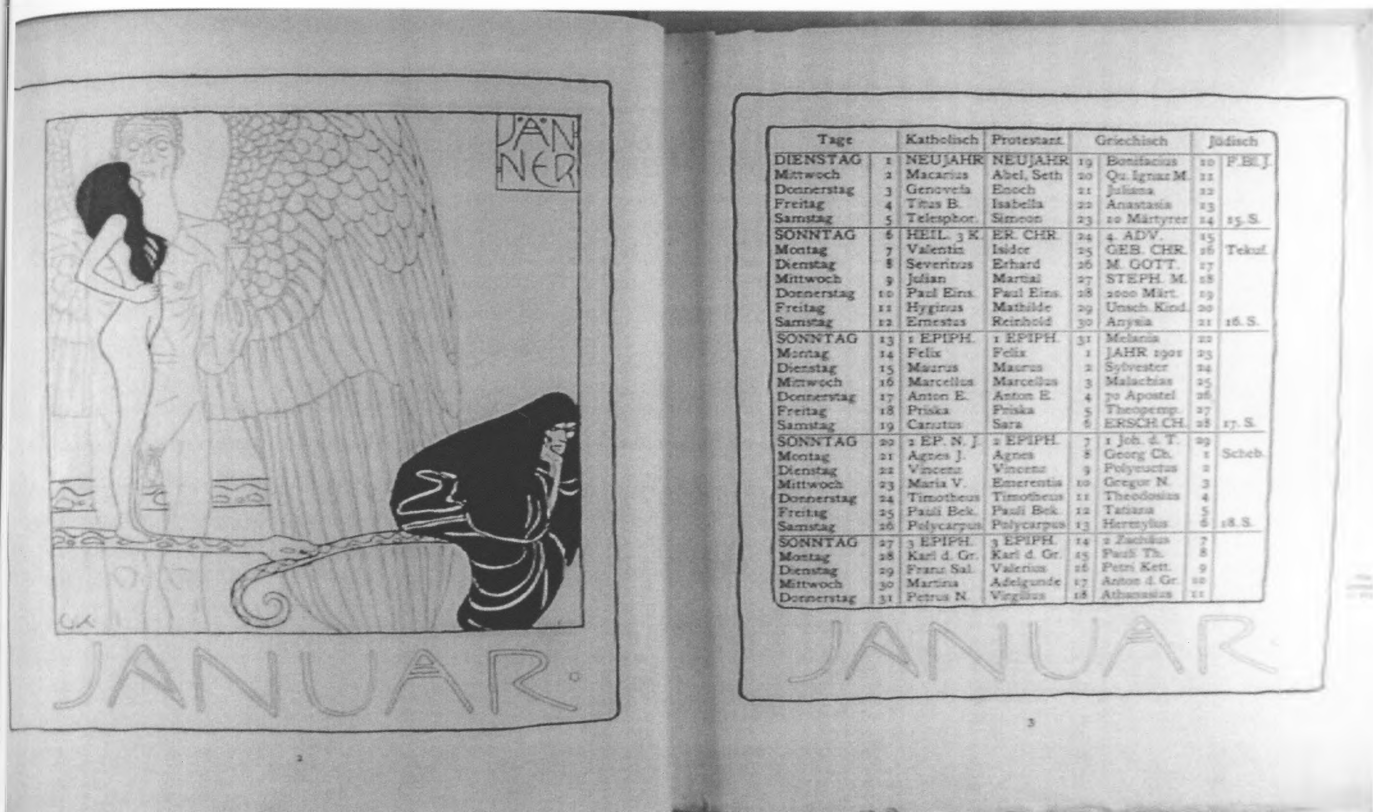 JÄN
NER
GK
JANUAR.
2
Tage Katholisch Protestant. Griechisch Jüdisch
DIENSTAG 1 NEUJAHR NEUJAHR 19 Bonifacius 10 F.Bl.J.
Mittwoch 2 Macarius Abel, Seth 20 Qu. Ignaz M. 11
Donnerstag 3 Genovefa Enoch 21 Juliana 12
Freitag 4 Titus B. Isabella 22 Anastasia 13
Samstag 5 Telesphor. Simeon 23 10 Märtyrer 14 15. S.
SONNTAG 6 HEIL. 3 K. ER. CHR. 24 4. ADV. 15
Montag 7 Valentin Isidor 25 GEB. CHR. 16 Tekuf.
Dienstag 8 Severinus Erhard 26 M. GOTT. 17
Mittwoch 9 Julian Martial 27 STEPH. M. 18
Donnerstag 10 Paul Eins. Paul Eins. 28 2000 Märt. 19
Freitag 11 Hyginus Mathilde 29 Unsch. Kind. 20
Samstag 12 Ernestus Reinhold 30 Anysia 21 16. S.
SONNTAG 13 1 EPIPH. 1 EPIPH. 31 Melania 22
Montag 14 Felix Felix 1 JAHR 1901 23
Dienstag 15 Maurus Maurus 2 Sylvester 24
Mittwoch 16 Marcellus Marcellus 3 Malachias 25
Donnerstag 17 Anton E. Anton E. 4 70 Apostel 26
Freitag 18 Priska Priska 5 Theopemp. 27
Samstag 19 Canutus Sara 6 ERSCH.CH. 28 17. S.
SONNTAG 20 2 EP. N. J. 2 EPIPH. 7 1 Joh. d. T. 29
Montag 21 Agnes J. Agnes 8 Georg Ch. 1 Scheb.
Dienstag 22 Vincenz Vincenz 9 Polyeuctus 2
Mittwoch 23 Maria V. Emerentia 10 Gregor N. 3
Donnerstag 24 Timotheus Timotheus 11 Theodosius 4
Freitag 25 Pauli Bek. Pauli Bek. 12 Tatiana 5
Samstag 26 Polycarpus Polycarpus 13 Hermylus 6 18. S.
SONNTAG 27 3 EPIPH. 3 EPIPH. 14 2 Zachäus 7
Montag 28 Karl d. Gr. Karl d. Gr. 15 Pauli Th. 8
Dienstag 29 Franz Sal. Valerius 16 Petri Kett. 9
Mittwoch 30 Martina Adelgunde 17 Anton d. Gr. 10
Donnerstag 31 Petrus N. Virgilius 18 Athanasius 11
JANUAR.
3